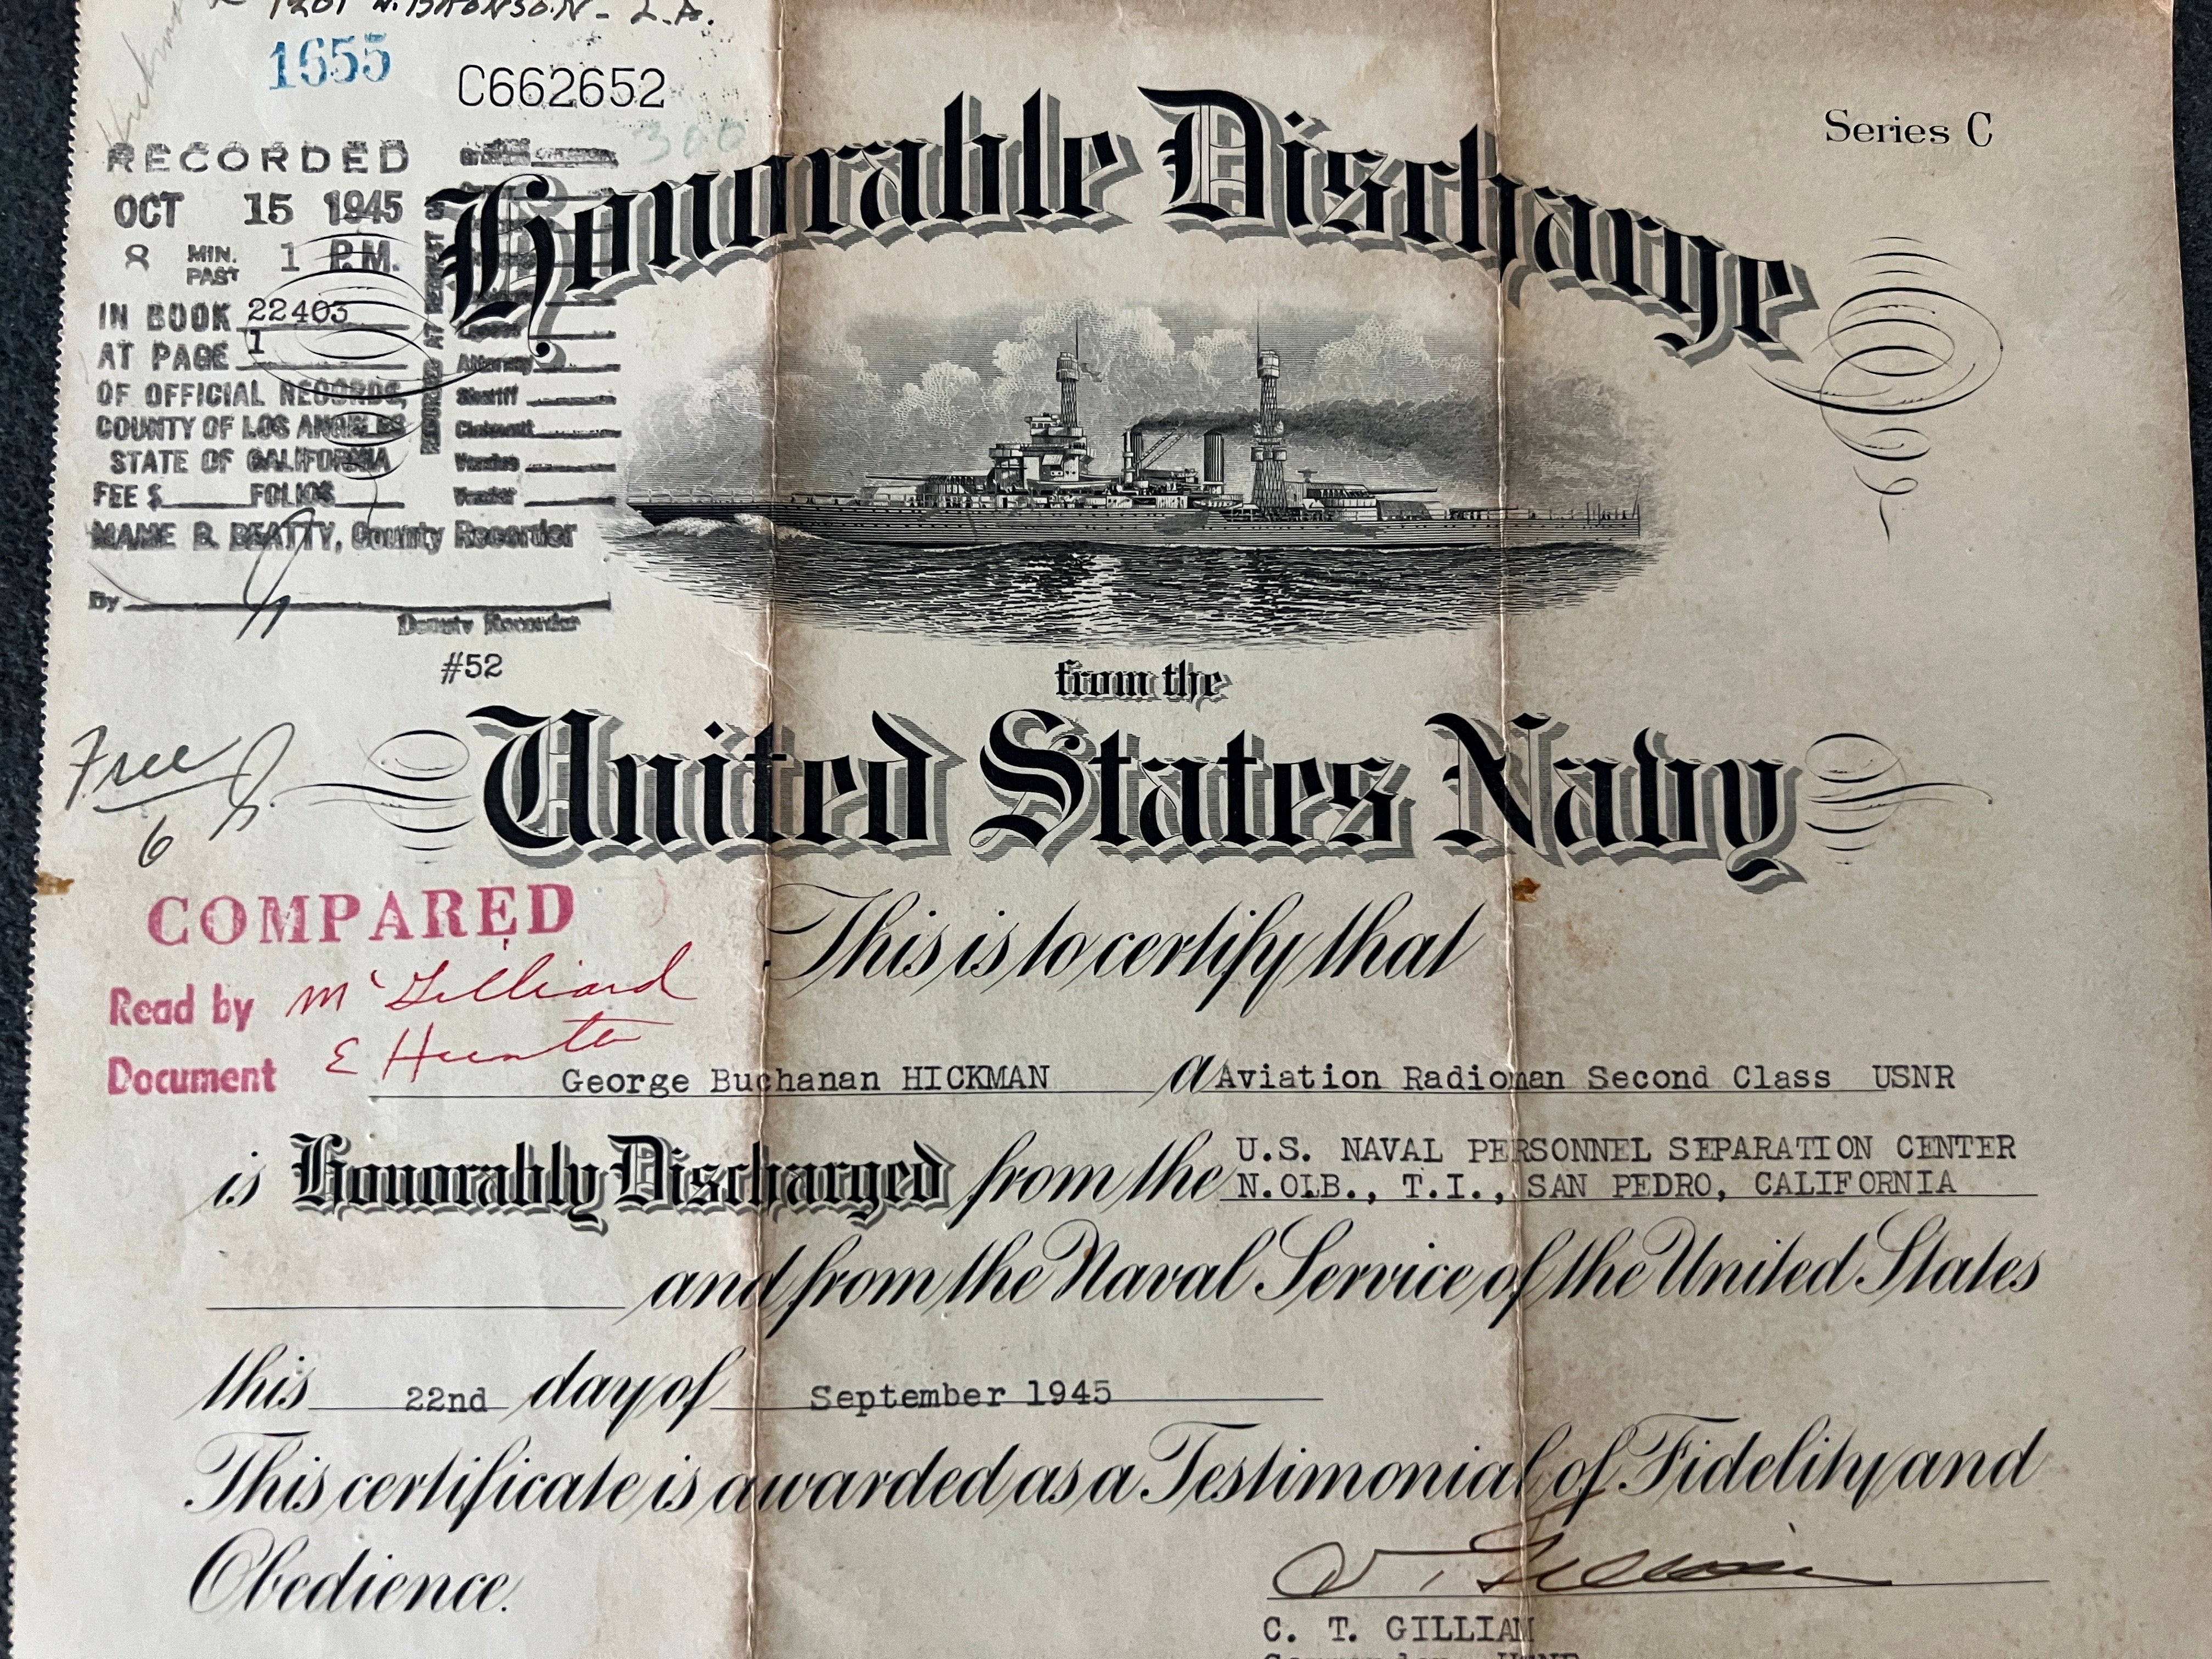 1201 N. BRONSON - L.A.
1655
C662652
300
Series C
RECORDED
OCT 15 1945
8 MIN. PAST 1 P.M.
IN BOOK 22403
AT PAGE 1
OF OFFICIAL RECORDS,
COUNTY OF LOS ANGELES
STATE OF CALIFORNIA
FEE $ FOLIOS
MAME B. BEATTY, County Recorder
By
Deputy Recorder
Attorney
Sheriff
Claimant
Vendee
Vendor
#52
Free
6
Honorable Discharge
from the
United States Navy
COMPARED
Read by McGilliard
Document E Hunter
This is to certify that
George Buchanan HICKMAN a Aviation Radioman Second Class USNR
is Honorably Discharged from the U.S. NAVAL PERSONNEL SEPARATION CENTER
N.OLB., T.I., SAN PEDRO, CALIFORNIA
and from the Naval Service of the United States
this 22nd day of September 1945
This certificate is awarded as a Testimonial of Fidelity and
Obedience.
C. T. GILLIAM